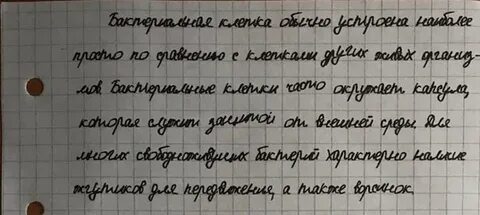 Бактериальная клетка обычно устроена наиболее
просто по сравнению с клетками других живых организ-
мов. Бактериальные клетки часто окружает капсула,
которая служит защитой от внешней среды. Для
многих свободноживущих бактерий характерно наличие
жгутиков для передвижения, а также ворсинок.